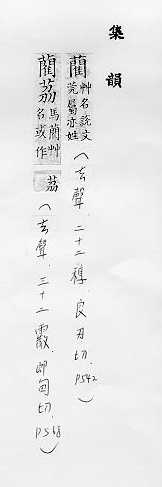 集韻
藺
艸名說文
莞屬亦姓
(去聲.二十二稕.良刃切.P542)
藺荔
馬藺艸
名或作
荔
(去聲.三十二霰.郎甸切.P568)